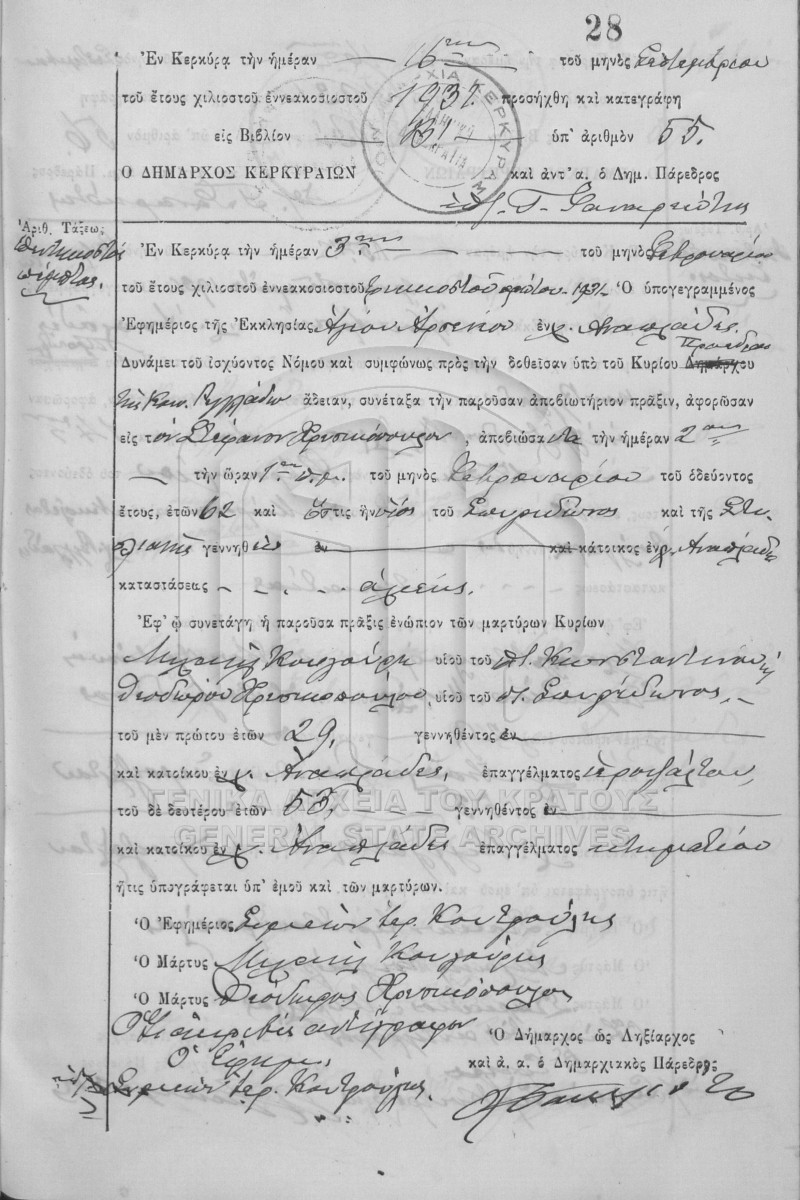 28
Ἐν Κερκύρᾳ τὴν ἡμέραν 16ην τοῦ μηνὸς Σεπτεμβρίου
τοῦ ἔτους χιλιοστοῦ ἐννεακοσιοστοῦ 1931. προσήχθη καὶ κατεγράφη
εἰς Βιβλίον Β1 ὑπ' ἀριθμὸν 55.
Ο ΔΗΜΑΡΧΟΣ ΚΕΡΚΥΡΑΙΩΝ καὶ ἀντ' α. ὁ Δημ. Πάρεδρος
Ἀριθ. Τάξεως:
Πεντηκοστὸς
πέμπτος.
Ἐν Κερκύρᾳ τὴν ἡμέραν 3ην τοῦ μηνὸς Φεβρουαρίου
τοῦ ἔτους χιλιοστοῦ ἐννεακοσιοστοῦ τριακοστοῦ πρώτου 1931 Ὁ ὑπογεγραμμένος
Ἐφημέριος τῆς Ἐκκλησίας Ἁγίου Ἀρσενίου ἐν χ. Αναπλάδες
Προέδρου
Δυνάμει τοῦ ἰσχύοντος Νόμου καὶ συμφώνως πρὸς τὴν δοθεῖσαν ὑπὸ τοῦ Κυρίου Δημάρχου
τῆς Κοιν. ἄδειαν, συνέταξα τὴν παροῦσαν ἀποβιωτήριον πρᾶξιν, ἀφορῶσαν
εἰς τὸν Στέφανον , ἀποβιώσαντα τὴν ἡμέραν 2αν
τὴν ὥραν 1ην π.μ. τοῦ μηνὸς Φεβρουαρίου τοῦ ὁδεύοντος
ἔτους, ἐτῶν 62 καὶ Ὅστις ἦν υἱὸς τοῦ Σπυρίδωνος καὶ τῆς Στυ
λιανῆς γεννηθεὶς ἐν καὶ κάτοικος ἐν χ. Αναπλάδες
καταστάσεως
Ἐφ' ᾧ συνετάγη ἡ παροῦσα πρᾶξις ἐνώπιον τῶν μαρτύρων Κυρίων
Μιχαὴλ Κουλούρη υἱοῦ τοῦ π. Κωνσταντίνου ἢ
Θεοδώρου υἱοῦ τοῦ π. Σπυρίδωνος,
τοῦ μὲν πρώτου ἐτῶν 29, γεννηθέντος ἐν
καὶ κατοίκου ἐν χ. Αναπλάδες, ἐπαγγέλματος ἱεροψάλτου,
τοῦ δὲ δευτέρου ἐτῶν 53, γεννηθέντος ἐν
ΓΕΝΙΚΑ ΑΡΧΕΙΑ ΤΟΥ ΚΡΑΤΟΥΣ
GENERAL STATE ARCHIVES
καὶ κατοίκου ἐν χ. Αναπλάδες ἐπαγγέλματος κτηματίου
ἥτις ὑπογράφεται ὑπ' ἐμοῦ καὶ τῶν μαρτύρων.
Ὁ Ἐφημέριος ἱερ. Κουτρούλης
Ὁ Μάρτυς Μιχαὴλ Κουλούρης
Ὁ Μάρτυς Θεόδωρος
ἀντίγραφον
Ὁ Ἐφημ.
ἱερ. Κουτρούλης
Ὁ Δήμαρχος ὡς Ληξίαρχος
καὶ ἀ. α. ὁ Δημαρχιακὸς Πάρεδρος